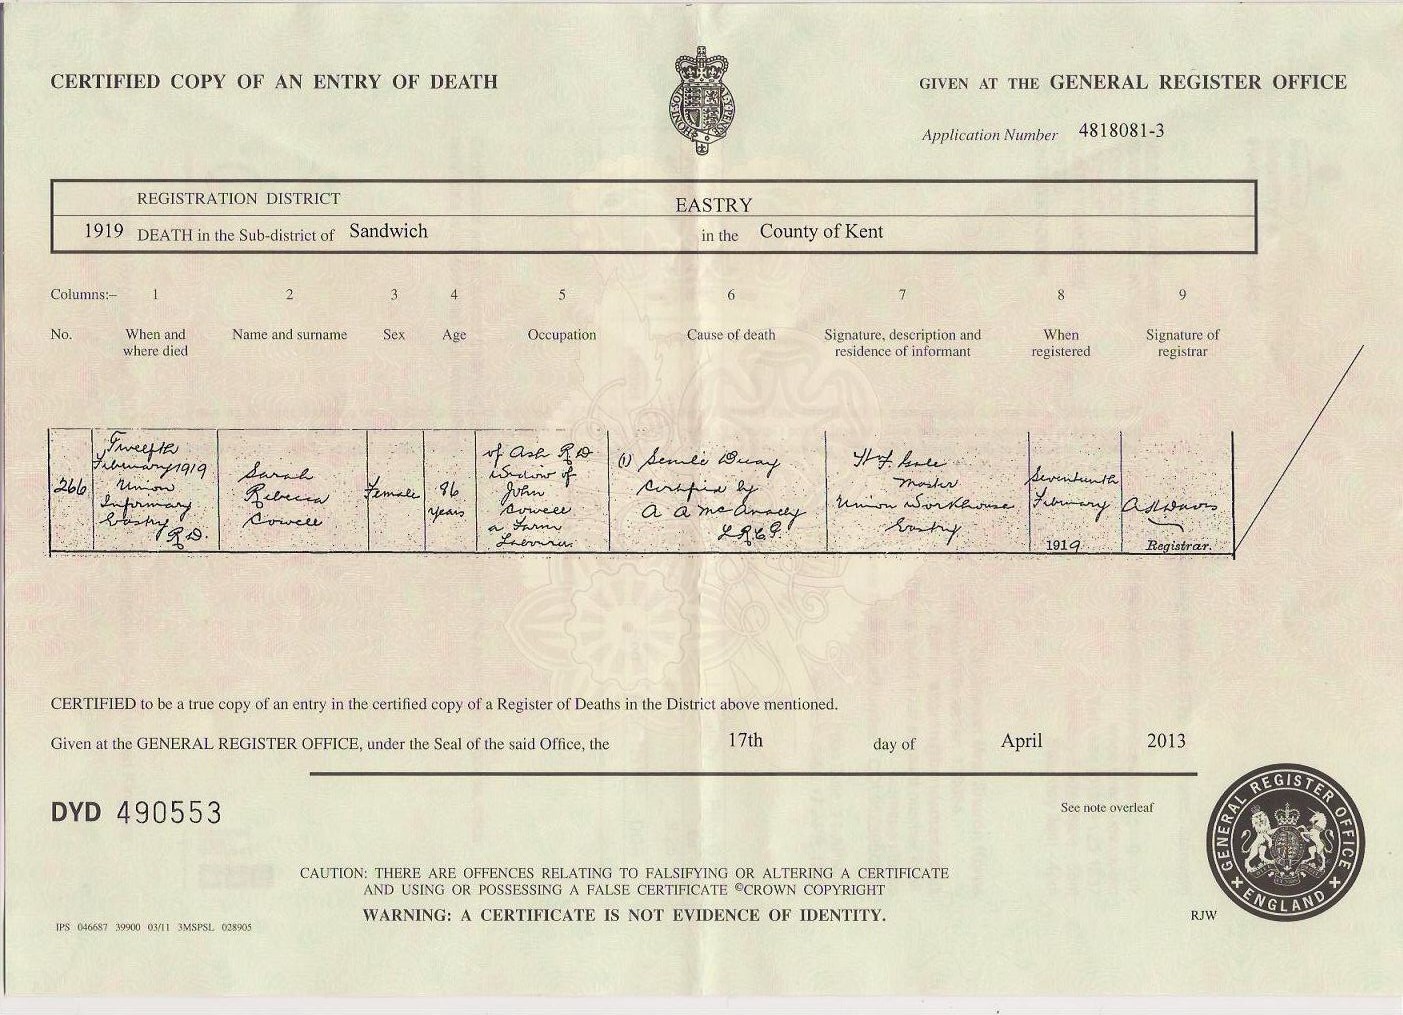 CERTIFIED COPY OF AN ENTRY OF DEATH
GIVEN AT THE GENERAL REGISTER OFFICE
Application Number 4818081-3
REGISTRATION DISTRICT EASTRY
1919 DEATH in the Sub-district of Sandwich in the County of Kent
Columns:– 1 2 3 4 5 6 7 8 9
No. When and where died Name and surname Sex Age Occupation Cause of death Signature, description and residence of informant When registered Signature of registrar
266
Twelfth
February 1919
Union
Infirmary
Eastry
R.D.
Sarah
Rebecca
Cowell
Female
86
years
of Ash R D
Widow of
John
Cowell
a Farm
Labourer
(1) Senile Decay
Certified by
A A
Master
Union Workhouse
Eastry
Seventeenth
February
1919
Registrar.
CERTIFIED to be a true copy of an entry in the certified copy of a Register of Deaths in the District above mentioned.
Given at the GENERAL REGISTER OFFICE, under the Seal of the said Office, the 17th day of April 2013
DYD 490553
See note overleaf
CAUTION: THERE ARE OFFENCES RELATING TO FALSIFYING OR ALTERING A CERTIFICATE
AND USING OR POSSESSING A FALSE CERTIFICATE ©CROWN COPYRIGHT
WARNING: A CERTIFICATE IS NOT EVIDENCE OF IDENTITY.
IPS 046687 39900 03/11 3MSPSL 028905
RJW
GENERAL REGISTER OFFICE
ENGLAND